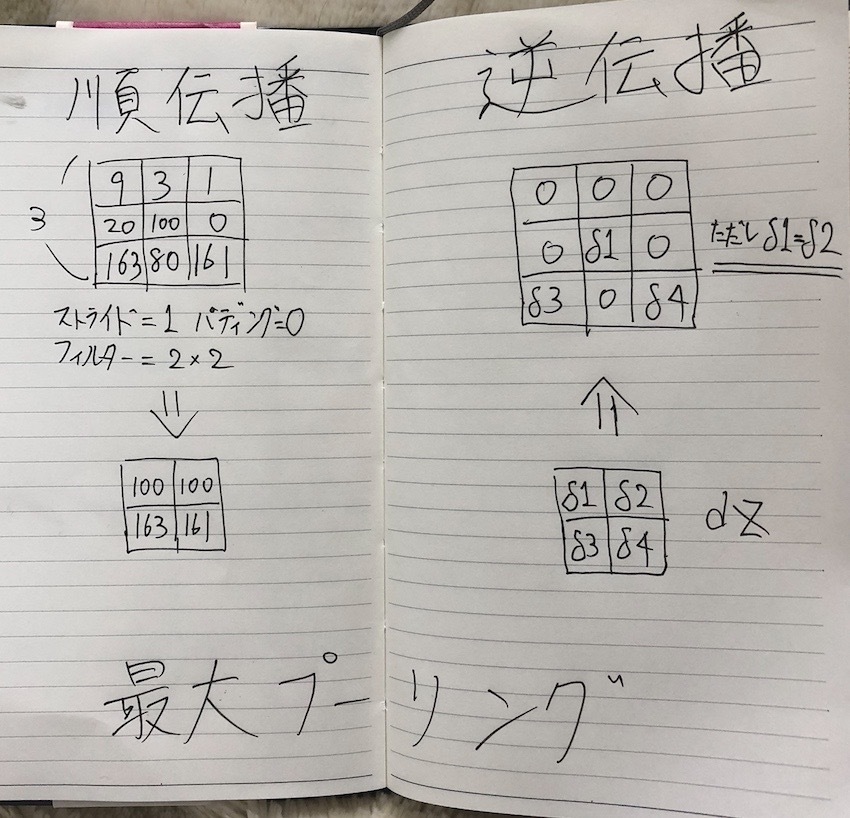 順伝播
3
9 3 1
20 100 0
163 80 161
ストライド=1 パディング=0
フィルター=2×2
100 100
163 161
逆伝播
0 0 0
0 δ1 0
δ3 0 δ4
ただし δ1=δ2
δ1 δ2
δ3 δ4
dZ
最大プーリング